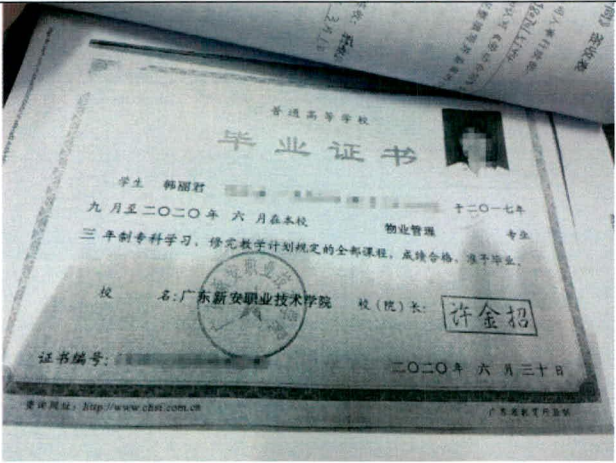 普通高等学校
毕业证书
学生 韩丽君 于二〇一七年
九月至二〇二〇年 六月在本校 物业管理 专业
三年制专科学习,修完教学计划规定的全部课程,成绩合格,准予毕业。
校 名:广东新安职业技术学院 校(院)长: 许金招
证书编号:
二〇二〇年 六月三十日
查询网址:http://www.chsi.com.cn 广东省教育厅监制